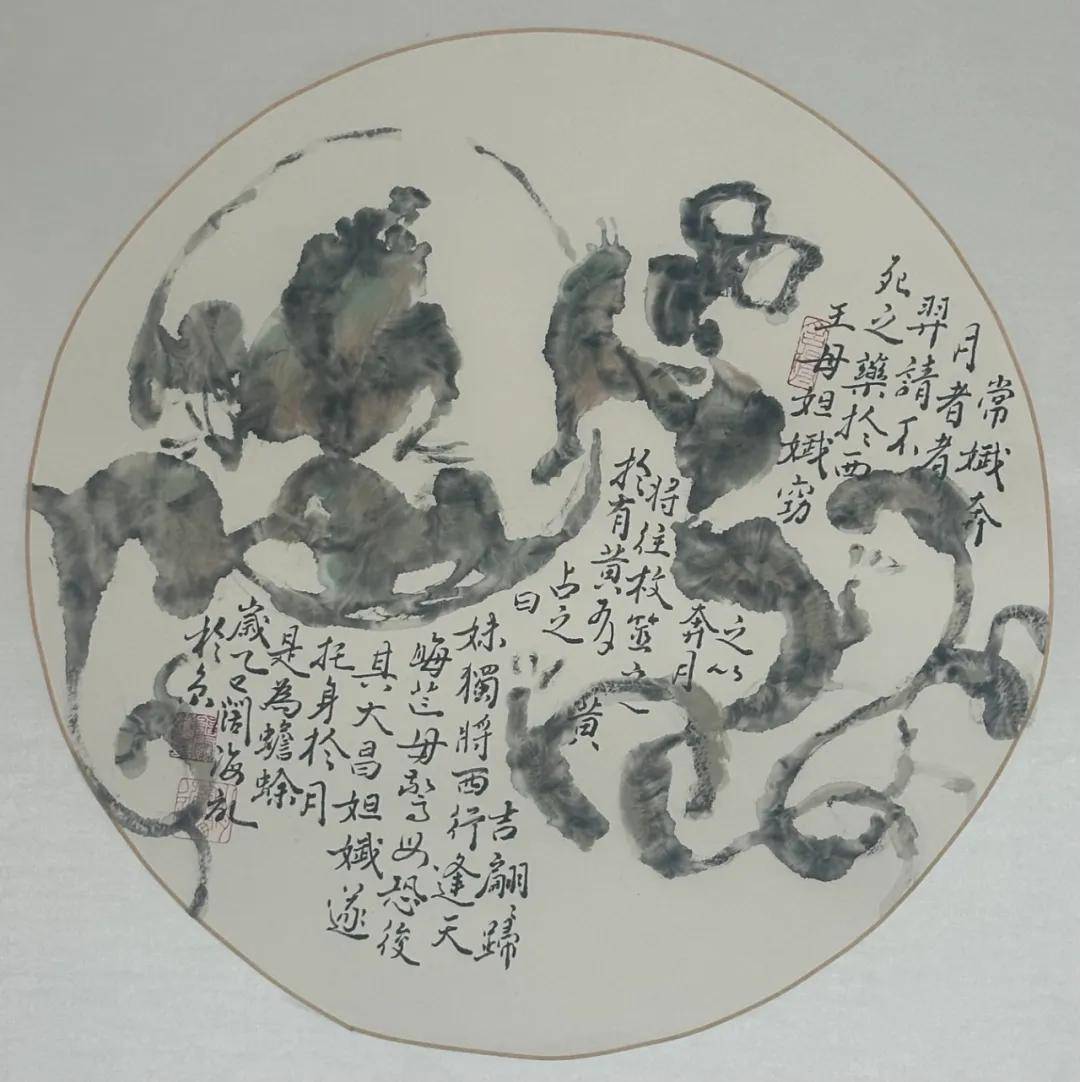 常孅奔
月者者
羿請不
死之藥於西
王母妲孅窃
之以
奔月
將往枚筮之
於有黄有黄
占之
曰
吉翩々歸
妹獨將西行逢天
晦芒毋驚毋恐後
其大昌妲孅遂
托身於月
是為蟾蜍
歲乙巳阔海
於京